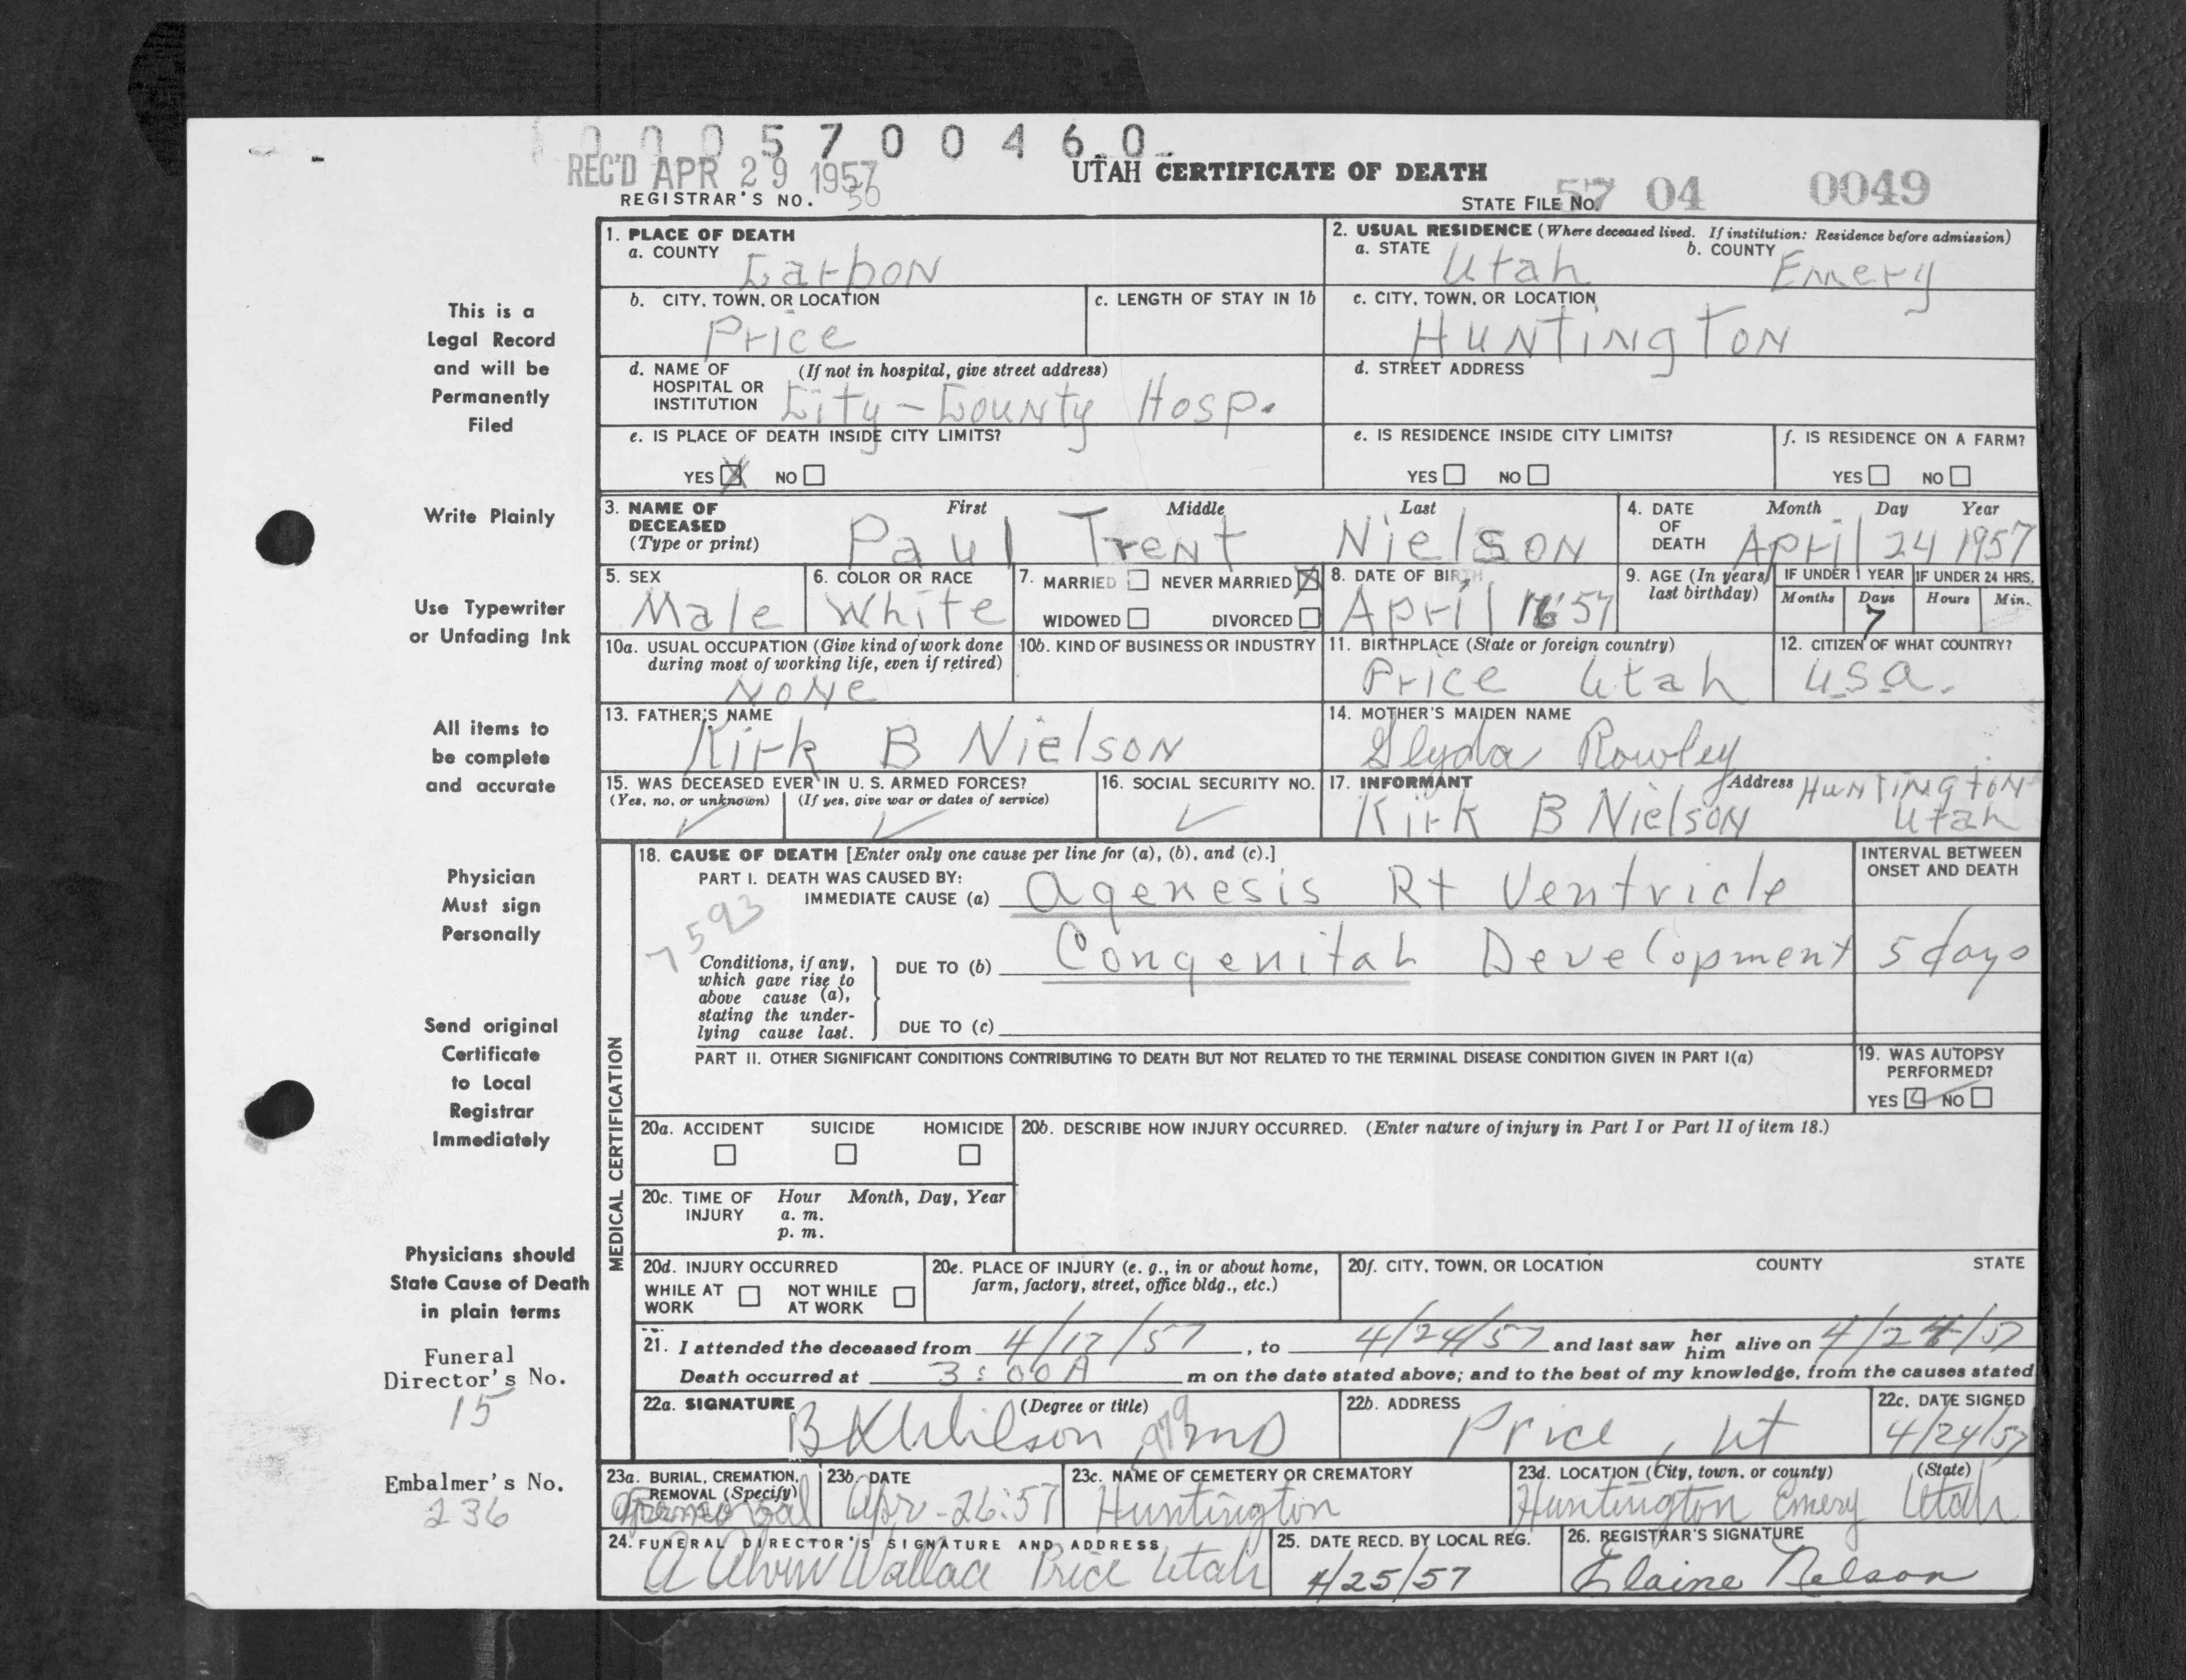 00057 0 0 4 6 0
REC'D APR 29 1957
UTAH CERTIFICATE OF DEATH
REGISTRAR'S NO. 50
STATE FILE NO. 57 04 0049
This is a
Legal Record
and will be
Permanently
Filed
Write Plainly
Use Typewriter
or Unfading Ink
All items to
be complete
and accurate
Physician
Must sign
Personally
Send original
Certificate
to Local
Registrar
Immediately
Physicians should
State Cause of Death
in plain terms
Funeral
Director's No.
15
Embalmer's No.
236
1. PLACE OF DEATH
a. COUNTY Carbon
2. USUAL RESIDENCE (Where deceased lived. If institution: Residence before admission)
a. STATE Utah b. COUNTY Emery
b. CITY, TOWN, OR LOCATION Price
c. LENGTH OF STAY IN 1b
c. CITY, TOWN, OR LOCATION HUNTINGTON
d. NAME OF HOSPITAL OR INSTITUTION (If not in hospital, give street address) City-County Hosp.
d. STREET ADDRESS
e. IS PLACE OF DEATH INSIDE CITY LIMITS?
YES X NO
e. IS RESIDENCE INSIDE CITY LIMITS?
YES NO
f. IS RESIDENCE ON A FARM?
YES NO
3. NAME OF DECEASED (Type or print) First Middle Last
Paul Trent Nielson
4. DATE OF DEATH Month Day Year
April 24 1957
5. SEX Male
6. COLOR OR RACE White
7. MARRIED NEVER MARRIED X
WIDOWED DIVORCED
8. DATE OF BIRTH April 16 57
9. AGE (In years last birthday)
IF UNDER 1 YEAR Months Days 7
IF UNDER 24 HRS. Hours Min.
10a. USUAL OCCUPATION (Give kind of work done during most of working life, even if retired) None
10b. KIND OF BUSINESS OR INDUSTRY
11. BIRTHPLACE (State or foreign country) Price Utah
12. CITIZEN OF WHAT COUNTRY? U.S.A.
13. FATHER'S NAME Kirk B Nielson
14. MOTHER'S MAIDEN NAME Glyda Rowley
15. WAS DECEASED EVER IN U. S. ARMED FORCES?
(Yes, no, or unknown) (If yes, give war or dates of service)
16. SOCIAL SECURITY NO.
17. INFORMANT Kirk B Nielson Address Huntington Utah
MEDICAL CERTIFICATION
18. CAUSE OF DEATH [Enter only one cause per line for (a), (b), and (c).]
INTERVAL BETWEEN ONSET AND DEATH
PART I. DEATH WAS CAUSED BY:
IMMEDIATE CAUSE (a) Agenesis Rt Ventricle
7593
Conditions, if any, which gave rise to above cause (a), stating the underlying cause last.
DUE TO (b) Congenital Development 5 days
DUE TO (c)
PART II. OTHER SIGNIFICANT CONDITIONS CONTRIBUTING TO DEATH BUT NOT RELATED TO THE TERMINAL DISEASE CONDITION GIVEN IN PART I(a)
19. WAS AUTOPSY PERFORMED?
YES NO
20a. ACCIDENT SUICIDE HOMICIDE
20b. DESCRIBE HOW INJURY OCCURRED. (Enter nature of injury in Part I or Part II of item 18.)
20c. TIME OF INJURY Hour Month, Day, Year
a. m.
p. m.
20d. INJURY OCCURRED
WHILE AT WORK NOT WHILE AT WORK
20e. PLACE OF INJURY (e. g., in or about home, farm, factory, street, office bldg., etc.)
20f. CITY, TOWN, OR LOCATION COUNTY STATE
21. I attended the deceased from 4/17/57, to 4/24/57 and last saw her him alive on 4/24/57
Death occurred at 3:00 A m on the date stated above; and to the best of my knowledge, from the causes stated
22a. SIGNATURE (Degree or title) B K Wilson 979 MD
22b. ADDRESS Price, Ut
22c. DATE SIGNED 4/24/57
23a. BURIAL, CREMATION, REMOVAL (Specify) Removal
23b. DATE Apr-26:57
23c. NAME OF CEMETERY OR CREMATORY Huntington
23d. LOCATION (City, town, or county) (State) Huntington Emery Utah
24. FUNERAL DIRECTOR'S SIGNATURE AND ADDRESS A Alvin Wallace Price Utah
25. DATE RECD. BY LOCAL REG. 4/25/57
26. REGISTRAR'S SIGNATURE Elaine Nelson